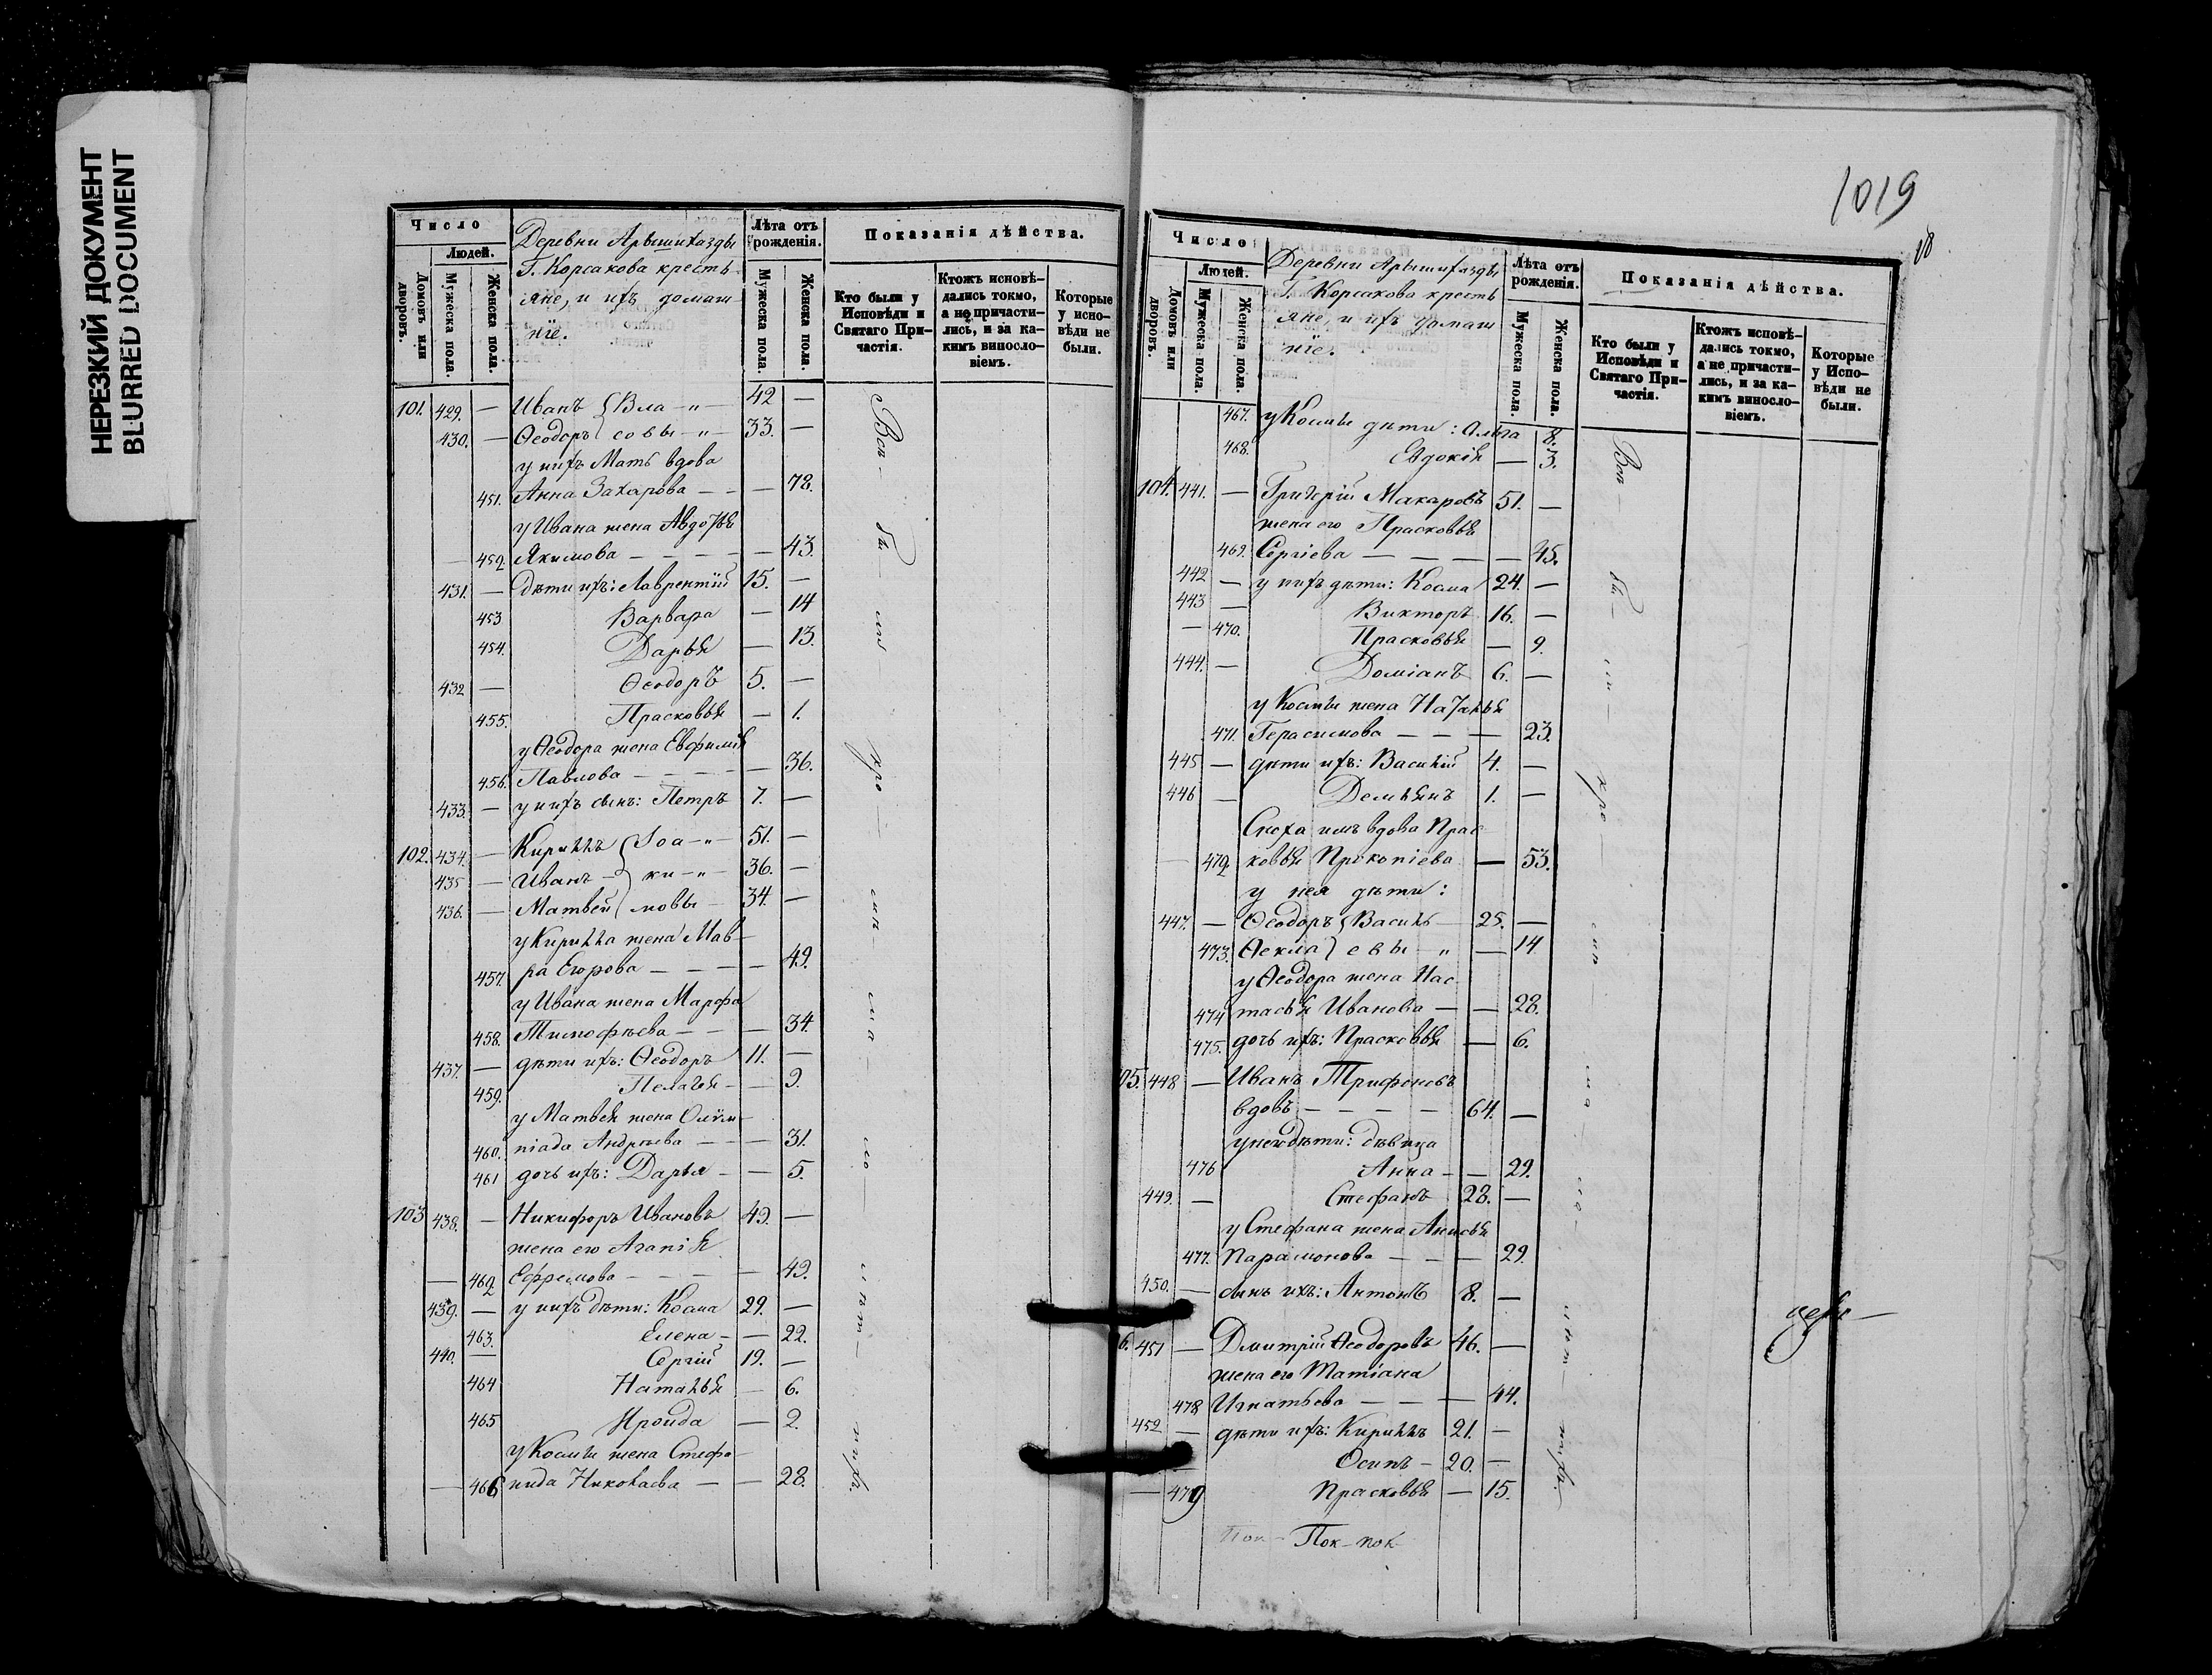 НЕРЕЗКИЙ ДОКУМЕНТ
BLURRED DOCUMENT
Число
Людей.
Домовъ или дворовъ.
Мужеска пола.
Женска пола.
Деревни Арышихазды
Г. Корсакова кресть
яне, и ихъ домаш
нїе.
Лѣта отъ рожденія.
Мужеска пола.
Женска пола.
Показанія дѣйства.
Кто были у Исповѣди и Святаго Причастія.
Ктожъ исповѣдались токмо, а не причастились, и за какимъ винословіемъ.
Которые у исповѣди не были.
101. 429. — Иванъ { Вла -„- 42 —
430. — Ѳеодоръ { совы -„- 33. —
у нихъ Мать вдова
451. Анна Захарова — — — 78.
у Ивана жена Авдотья
452. Якимова — — — — 43.
431. — дѣти ихъ: Лаврентій 15. —
453 Варвара — 14
454. Дарья — 13.
432 — Ѳеодоръ 5. —
455. Прасковья — 1.
у Ѳеодора жена Евфимія
456. Павлова — — — — 36.
433. — у нихъ сынъ: Петръ 7. —
102. 434. — Кириллъ { Іоа -„- 51. —
435 — Иванъ — } ки -„- 36. —
436. — Матвей { мовы — 34. —
у Кирилла жена Мав-
457. ра Егорова — — — — 49.
у Ивана жена Марфа
458. Тимофѣева — — — 34.
437. — дѣти ихъ: Ѳеодоръ 11. —
459. Пелагея — — 9.
у Матвея жена Олѵм-
460. піада Андрѣева — — — 31.
461 дочь ихъ: Дарья — — 5.
103 438. — Никифоръ Ивановъ 49. —
жена его Агапія
462 Ефремова — — — — 49.
439. — у нихъ дѣти: Косма 29. —
463. Елена — — 22.
440. — Сергій 19. —
464 Наталья — 6.
465 Ироида — 2.
у Космы жена Стефа-
466 нида Николаева — — 28.
Бы-
1019
18
Число
Людей.
Домовъ или дворовъ.
Мужеска пола.
Женска пола.
Деревни Арышихазды
Г. Корсакова кресть
яне, и ихъ домаш
нїе.
Лѣта отъ рожденія.
Мужеска пола.
Женска пола.
Показанія дѣйства.
Кто были у Исповѣди и Святаго Причастія.
Ктожъ исповѣдались токмо, а не причастились, и за какимъ винословіемъ.
Которые у Исповѣди не были.
467. у Космы дѣти: Ольга 8.
468. Евдокія — 3.
104. 441. — Григорій Макаровъ 51. —
жена его Прасковья
469. Сергіева — — — — 45.
442 — у нихъ дѣти: Косма 24. —
443 — Викторъ 16. —
— 470. Прасковья — 9.
444. — Доміанъ 6. —
у Космы жена Наталья
471. Герасимова — — — 23.
445 — дѣти ихъ: Василій 4. —
446 — Демьянъ 1. —
Сноха имъ вдова Прас-
472 ковья Прокопіева — 53.
у нея дѣти:
447. — Ѳеодоръ { Василь — 25. —
473. Ѳекла } евы — „ — 14
у Ѳеодора жена Нас-
474 тасья Иванова — — 28.
475. дочь ихъ: Прасковья — 6.
05. 448 — Иванъ Трифоновъ
вдовъ — — — — 64. —
у него дѣти: дѣвица
476 Анна — — 29.
449. — Стефанъ 28. —
у Стефана жена Анисья
477. Парамонова — — — 29.
450. — сынъ ихъ: Антонъ 8. —
6. 451 — Дмитрій Ѳеодоровъ 46. —
жена его Татіана
478 Игнатьева — — — 44.
452 — дѣти ихъ: Кириллъ 21. —
Осипъ — 20. —
— 479 Прасковья — 15.
Пок - Пок - пок